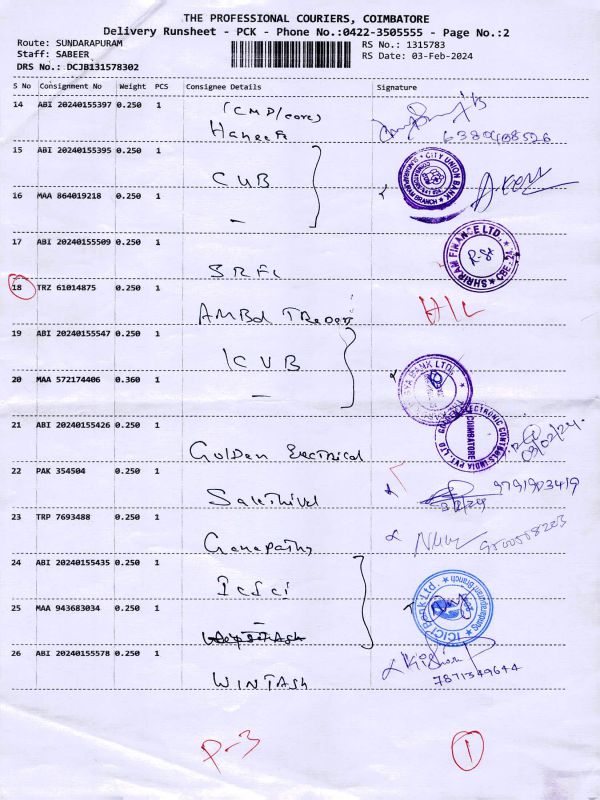 THE PROFESSIONAL COURIERS, COIMBATORE
Delivery Runsheet - PCK - Phone No.:0422-3505555 - Page No.:2
Route: SUNDARAPURAM
RS No.: 1315783
Staff: SABEER
RS Date: 03-Feb-2024
DRS No.: DCJB131578302
S No Consignment No Weight PCS Consignee Details Signature
14 ABI 20240155397 0.250 1
Haneefa
6380408526
15 ABI 20240155395 0.250 1
CUB
CITY UNION BANK
16 MAA 864019218 0.250 1
17 ABI 20240155509 0.250 1
SRFL
SHRIRAM FINANCE LTD.
R-St
CBE-24
18 TRZ 61014875 0.250 1
19 ABI 20240155547 0.250 1
KVB
20 MAA 572174406 0.360 1
BANK LTD
21 ABI 20240155426 0.250 1
Golden Electrical
ELECTRONIC CONTROLS INDIA PVT. LTD
COIMBATORE
03/02/24
22 PAK 354504 0.250 1
Sakthivel
3/2/24
9791903419
23 TRP 7693488 0.250 1
Ganapathy
24 ABI 20240155435 0.250 1
Icici
ICICI Bank Ltd.
Sundarapuram Branch
25 MAA 943683034 0.250 1
26 ABI 20240155578 0.250 1
WINTASh
Kishor
7871349644
P-3
1